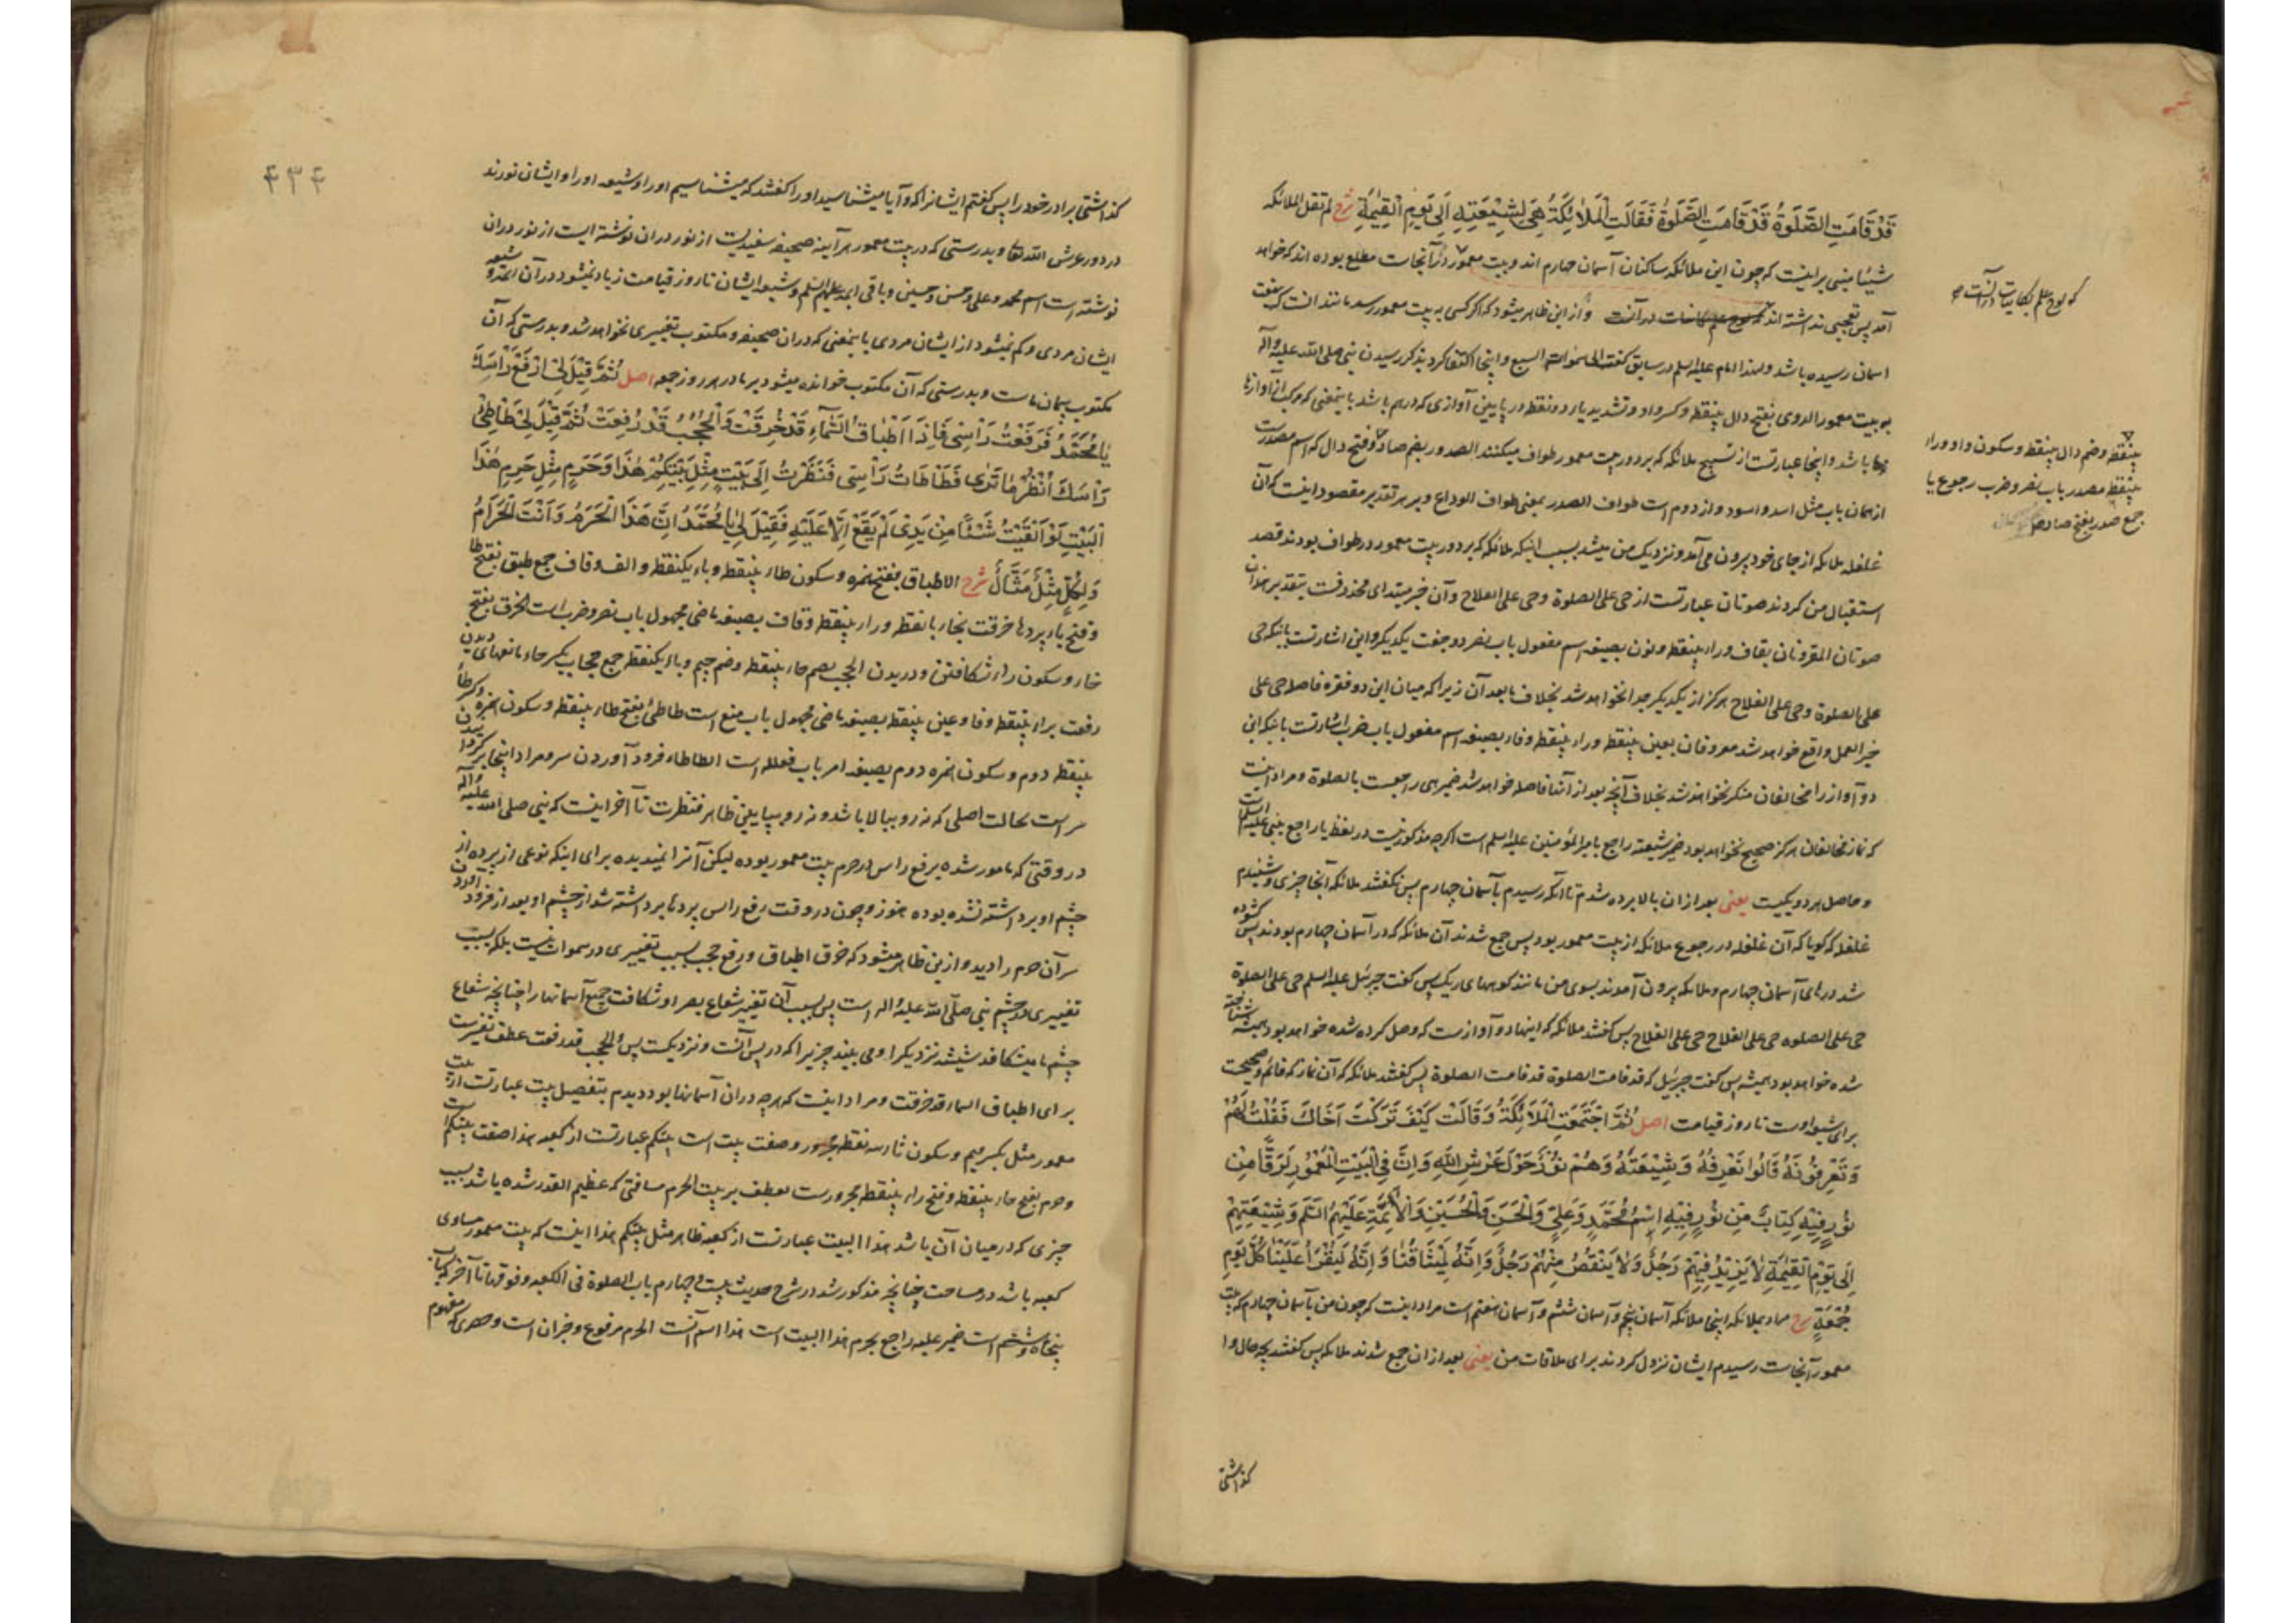 قَدْ قَامَتِ الصَّلٰوةُ قَدْ قَامَتِ الصَّلٰوةُ فَقَالَتِ الْمَلَائِكَةُ هِيَ لِشِيْعَتِهِ اِلَى يَوْمِ الْقِيٰمَةِ شرح لم تقل الملائکه
شیئا مبنی بر اینست که چون این ملائکه ساکنان آسمان چهارم اند و بیت معمور در آنجاست مطلع بوده اند که خواهد
آمد پس تعجبی نداشته اند و از این ظاهر میشود که اگر کسی به بیت معمور رسد مانند آنست که بهفت
که لوح علم بکاینات در آنست صح
اسمان رسیده باشد ولهذا امام علیه السلم در سابق گفت الی سموات السبع و اینجا اکتفا کرد بذکر رسیدن نبی صلی الله علیه وآله
به بیت معمور الدوی بفتح دال بینقطه و کسر واو و تشدید یاء دو نقطه در پایین آوازی که درهم باشد باینمعنی که مرکب از آوازها
باشد و اینجا عبارتست از تسبیح ملائکه که بر دور بیت معمور طواف میکنند الصدور بضم صاد و فتح دال که اسم مصدرست
بینقطه و ضم دال بینقطه و سکون واو و راء
بینقطه مصدر باب نصر و ضرب رجوع یا
جمع صدر بفتح صاد
از همان باب مثل اسد و اسود و از دوم است طواف الصدر بمعنی طواف الوداع و بر هر تقدیر مقصود اینست که آن
غلغله ملائکه از جای خود بیرون می آمد و نزدیک من میشد بسبب اینکه ملائکه که بر دور بیت معمور در طواف بودند قصد
استقبال من کردند صوتان عبارتست از حی علی الصلوة و حی علی الفلاح و آن خبر مبتدای محذوفست بتقدیر هذان
صوتان المقرونان بقاف و راء بینقطه و نون بصیغه اسم مفعول باب نصر دو جفت یکدیگر و این اشارتست باینکه حی
علی الصلوة و حی علی الفلاح هرگز از یکدیگر جدا نخواهد شد بخلاف مابعد آن زیرا که میان این دو فقره فاصله حی علی
خیر العمل واقع خواهد شد معروفان بعین بینقطه و راء بینقطه و فاء بصیغه اسم مفعول باب ضرب اشارتست باینکه این
دو آواز را مخالفان منکر نخواهند شد بخلاف آنچه بعد از آنها فاصله خواهد شد ضمیر هی راجعست بالصلوة و مراد اینست
که نماز مخالفان هرگز صحیح نخواهد بود ضمیر شیعته راجع بامیر المؤمنین علیه السلم است اگرچه مذکور نیست در لفظ یا راجع بنبی علیه السلم است
و حاصل هر دو یکیست یعنی بعد از ان بالا برده شدم تا آنکه رسیدم بآسمان چهارم پس نگفتند ملائکه آنجا چیزی و شنیدم
غلغله که گویا که آن غلغله در رجوع ملائکه از بیت معمور بود پس جمع شدند آن ملائکه که در آسمان چهارم بودند پس گشوده
شد درهای آسمان چهارم و ملائکه بیرون آمدند بسوی من مانند کوههای ریک پس گفت جبرئیل علیه السلم حی علی الصلوة
حی علی الصلوه حی علی الفلاح حی علی الفلاح پس گفتند ملائکه که اینها دو آوازست که وصل کرده شده خواهد بود همیشه شناخته
شده خواهد بود همیشه پس گفت جبرئیل که قد قامت الصلوة قد قامت الصلوة پس گفتند ملائکه که آن نماز که قائم و صحیحست
برای شیعه اوست تا روز قیامت اصل ثُمَّ اجْتَمَعَتِ الْمَلَائِكَةُ وَقَالَتْ كَيْفَ تَرَكْتَ اَخَاكَ فَقُلْتُ لَهُمْ
وَتَعْرِفُوْنَهُ قَالُوا نَعْرِفُهُ وَشِيْعَتَهُ وَهُمْ نُوْرٌ حَوْلَ عَرْشِ اللّٰهِ وَاِنَّ فِي الْبَيْتِ الْمَعْمُوْرِ لَرَقًّا مِنْ
نُوْرٍ فِيْهِ كِتَابٌ مِّنْ نُوْرٍ فِيْهِ اِسْمُ مُحَمَّدٍ وَعَلِيٍّ وَالْحَسَنِ وَالْحُسَيْنِ وَالْاَئِمَّةِ عَلَيْهِمُ السَّلَمُ وَشِيْعَتِهِمْ
اِلَى يَوْمِ الْقِيٰمَةِ لَا يَزِيْدُ فِيْهِمْ رَجُلٌ وَلَا يَنْقُصُ مِنْهُمْ رَجُلٌ وَاِنَّهُ لَمِيْثَاقُنَا وَاِنَّهُ لَيُقْرَأُ عَلَيْنَا كُلَّ يَوْمِ
جُمُعَةٍ شرح مراد بملائکه اینجا ملائکه آسمان پنجم و آسمان ششم و آسمان هفتم است مراد اینست که چون من بآسمان چهارم که بیت
معمور آنجاست رسیدم ایشان نزول کردند برای ملاقات من یعنی بعد از ان جمع شدند ملائکه پس گفتند بچه حال وا
گذاشتی
۴۳۴
گذاشتی برادر خود را پس گفتم ایشانرا که و آیا میشناسید او را گفتند که میشناسیم او را و شیعه او را و ایشان نورند
در دور عرش الله تعالی و بدرستی که در بیت معمور هر آینه صحیفه سفیدیست از نور در ان نوشته ایست از نور در ان
نوشته است اسم محمد و علی و حسن و حسین و باقی ایمه علیهم السلم و شیعه ایشان تا روز قیامت زیاد نمیشود در آن ائمه و شیعه
ایشان مردی و کم نمیشود از ایشان مردی باینمعنی که در ان صحیفه و مکتوب تغییری نخواهد شد و بدرستی که آن
مکتوب پیمان ماست و بدرستی که آن مکتوب خوانده میشود بر ما در هر روز جمعه اصل ثُمَّ قِيْلَ لِيْ اِرْفَعْ رَاْسَكَ
يَا مُحَمَّدُ فَرَفَعْتُ رَاْسِيْ فَاِذَا اَطْبَاقُ السَّمَاءِ قَدْ خُرِقَتْ وَالْحُجُبُ قَدْ رُفِعَتْ ثُمَّ قِيْلَ لِيْ طَاْطِئْ
رَاْسَكَ اُنْظُرْ مَا تَرَى فَطَاْطَاْتُ رَاْسِيْ فَنَظَرْتُ اِلَى بَيْتٍ مِثْلِ بَيْتِكُمْ هٰذَا وَحَرَمٍ مِثْلِ حَرَمِ هٰذَا
الْبَيْتِ لَوْ اَلْقَيْتُ شَيْئًا مِنْ يَدِيْ لَمْ يَقَعْ اِلَّا عَلَيْهِ فَقِيْلَ لِيْ يَا مُحَمَّدُ اِنَّ هَذَا الْحَرَمُ وَاَنْتَ الْحَرَامُ
وَلِكُلِّ مِثْلٍ مِثَالٌ شرح الاطباق بفتح همزه و سکون طاء بینقطه و باء یکنقطه و الف و قاف جمع طبق بفتح طا
و فتح باء پردها خرقت بخاء بانقطه و راء بینقطه و قاف بصیغه ماضی مجهول باب نصر و ضرب است الخرق بفتح
خاء و سکون راء شکافتن و دریدن الحجب بضم حاء بینقطه و ضم جیم و باء یکنقطه جمع حجاب بکسر حاء مانعهای دیدن
رفعت براء بینقطه و فا و عین بینقطه بصیغه ماضی مجهول باب منع است طاطئ بفتح طاء بینقطه و سکون همزه و کسر طاء
بینقطه دوم و سکون همزه دوم بصیغه امر باب فعلله است الطاطاه فرود آوردن سر و مراد اینجا برگردانیدن
سر است بحالت اصلی که نه رو ببالا باشد و نه رو بپایین ظاهر فنظرت تا آخر اینست که نبی صلی الله علیه وآله
در وقتی که مامور شده برفع راس در حرم بیت معمور بوده لیکن آنرا نمیدیده برای اینکه نوعی از پرده از
چشم او برداشته نشده بوده هنوز و چون در وقت رفع راس پردها برداشته شد از چشم او بعد از فرود آوردن
سر آن حرم را دید و ازین ظاهر میشود که خرق اطباق و رفع حجب بسبب تغییری در سموات نیست بلکه بسبب
تغییری در چشم نبی صلّی الله علیه وآله است پس بسبب آن تغییر شعاع بصر او شکافت جمیع آسمانها را چنانچه شعاع
چشم ما میشکافد شیشه نزدیکرا و می بیند چیزیرا که در پس آنست و نزدیکست پس و الحجب قد رفعت عطف تفسیرست
برای اطباق السماء قد خرقت و مراد اینست که هرچه در ان آسمانها بود دیدم بتفصیل بیت عبارتست از بیت
معمور مثل بکسر میم و سکون ثاء سه نقطه مجرور و صفت بیت است بیتکم عبارتست از کعبه هذا صفت بیتکم است
و حرم بفتح حاء بینقطه و فتح راء بینقطه مجرورست بعطف بر بیت الحرم مسافتی که عظیم القدر شده باشد بسبب
چیزی که در میان آن باشد هذا البیت عبارتست از کعبه ظاهر مثل بیتکم هذا اینست که بیت معمور مساوی
کعبه باشد در مساحت چنانچه مذکور شد در شرح حدیث بیست و چهارم باب الصلوة فی الکعبه و فوقها تا آخر که باب
پنجاه و ششم است ضمیر علیه راجع بحرم هذا البیت است هذا اسم انّست الحرم مرفوع و خبر ان است و حصری که مفهوم